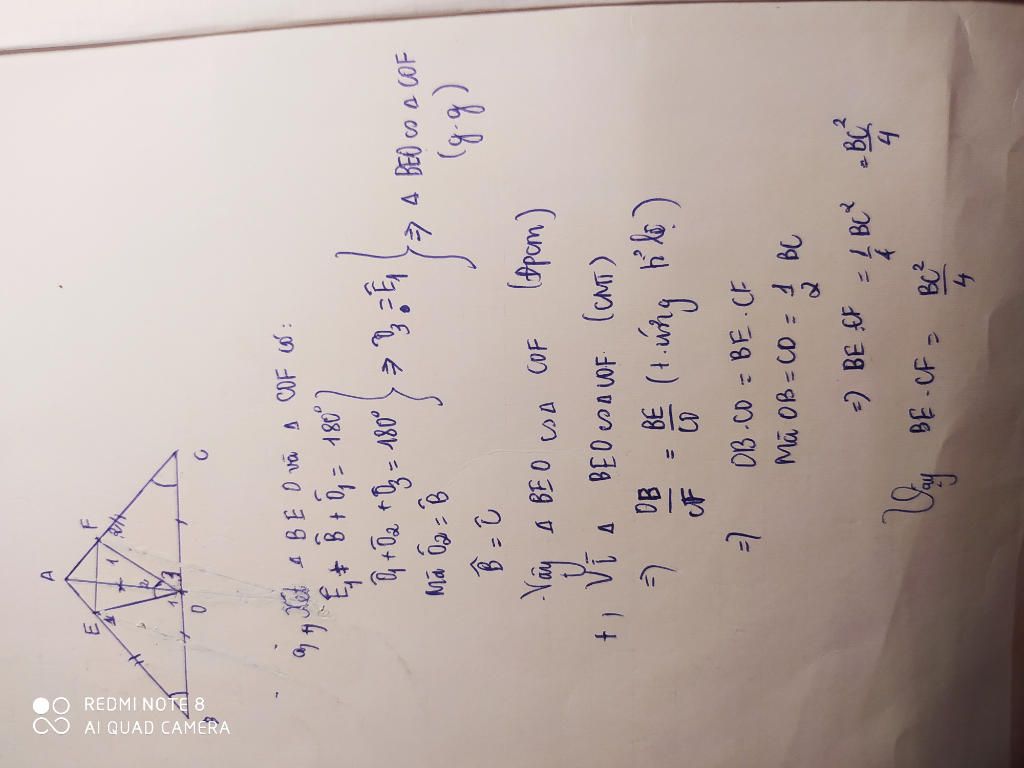 A
E
F
1
2
1
1
2
3
B
O
C
a, +) Xét Δ BEO và Δ COF có:
Ê₁ + B̂ + Ô₁ = 180°
Ô₁ + Ô₂ + Ô₃ = 180° } ⇒ Ô₃ = Ê₁
Mà Ô₂ = B̂
B̂ = Ĉ
} ⇒ Δ BEO ∽ Δ COF
(g.g)
Vậy Δ BEO ∽ Δ COF (Đpcm)
+, Vì Δ BEO ∽ Δ COF (CMT)
⇒ OB/CF = BE/CO (t.ứng tỉ lệ)
⇒ OB.CO = BE.CF
Mà OB = CO = 1/2 BC
⇒ BE.CF = 1/4 BC² = BC²/4
Vậy BE.CF = BC²/4
REDMI NOTE 8
AI QUAD CAMERA